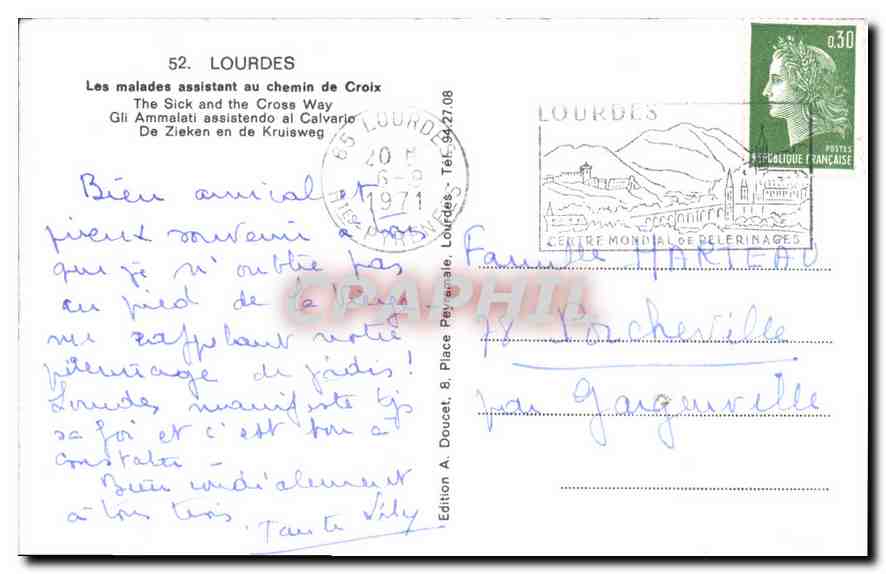 52. LOURDES
Les malades assistant au chemin de Croix
The Sick and the Cross Way
Gli Ammalati assistendo al Calvario
De Zieken en de Kruisweg
Bien amical et
pieux souvenir à vous
que je n'oublie pas
au pied de la Vierge
me rappelant notre
pèlerinage de jadis !
Lourdes manifeste tjs
sa foi et c'est bon à
constater -
Bien cordialement
à tous trois.
Tante Lily
Edition A. Doucet, 8, Place Peyramale, Lourdes - Tél. 94-27.08
65 LOURDES
1971
HTES PYRENEES
LOURDES
CENTRE MONDIAL DE PELERINAGES
0,30
POSTES
REPUBLIQUE FRANÇAISE
Famille MARTEAU
78 Porcheville
par Gargenville
CPAPHIL